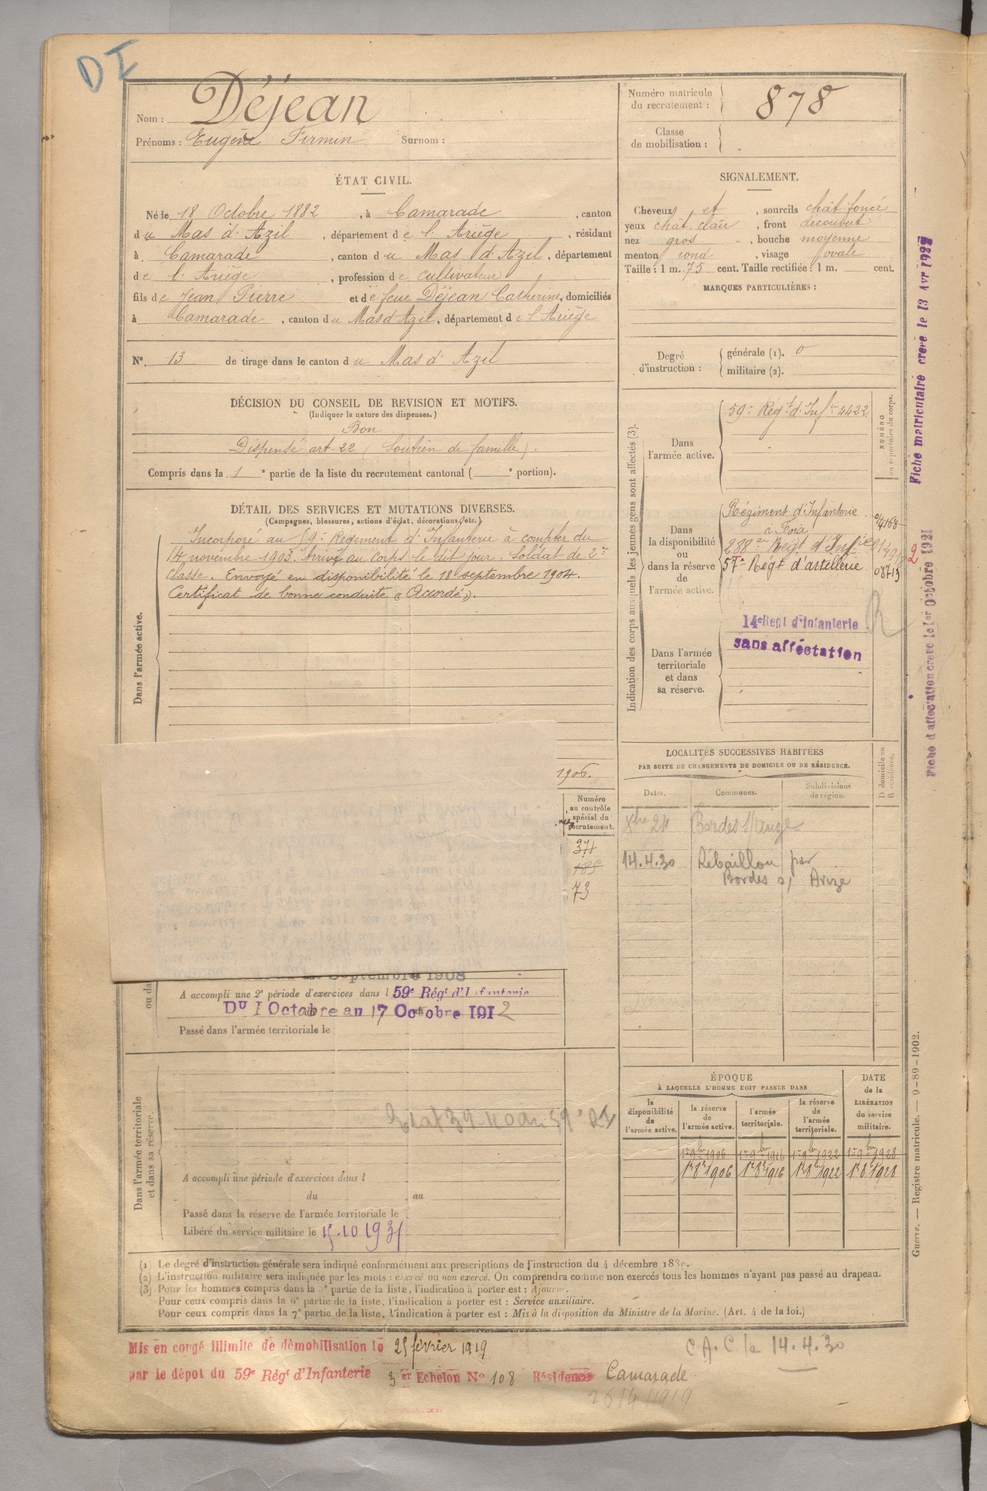 DI
Nom : Déjean
Prénoms : Eugène Firmin Surnom :
ÉTAT CIVIL.
Né le 18 Octobre 1882 , à Camarade , canton
du Mas d'Azil , département de l'Ariège , résidant
à Camarade , canton du Mas d'Azil , département
de l'Ariège , profession de cultivateur
fils de Jean Pierre et de feue Déjean Catherine, domiciliés
à Camarade , canton du Mas d'Azil, département de l'Ariège
N°. 13 de tirage dans le canton du Mas d'Azil
DÉCISION DU CONSEIL DE REVISION ET MOTIFS.
(Indiquer la nature des dispenses.)
Bon
Dispensé art. 22 (Soutien de famille).
Compris dans la 1e partie de la liste du recrutement cantonal ( e portion).
DÉTAIL DES SERVICES ET MUTATIONS DIVERSES.
(Campagnes, blessures, actions d'éclat, décorations, etc.)
Dans l'armée active.
Incorporé au 59e Régiment d'Infanterie à compter du
14 novembre 1903. Arrivé au corps le dit jour. Soldat de 2e
classe. Envoyé en disponibilité le 18 septembre 1904.
Certificat de bonne conduite « Accordé ».
1906.
Numéro
au contrôle
spécial du
recrutement.
371
73
Septembre 1908
A accompli une 2e période d'exercices dans l 59e Régt d'Infanterie
Du 1 Octobre au 17 Octobre 1912
Passé dans l'armée territoriale le
Dans l'armée territoriale
et dans sa réserve.
A accompli une période d'exercices dans l
du au
Passé dans la réserve de l'armée territoriale le
Libéré du service militaire le 15.10.1931
Numéro matricule
du recrutement : 878
Classe
de mobilisation :
SIGNALEMENT.
Cheveux et , sourcils chât foncé
yeux chât clair , front découvert
nez gros , bouche moyenne
menton rond , visage ovale
Taille : 1 m. 75 cent. Taille rectifiée : 1 m. cent.
MARQUES PARTICULIÈRES :
Degré
d'instruction :
générale (1). 0
militaire (2).
Indication des corps auxquels les jeunes gens sont affectés (3).
Dans
l'armée active.
59e Régt d'Infie 4422
Dans
la disponibilité
ou
dans la réserve
de
l'armée active.
Régiment d'Infanterie
de Foix
288e Regt d'Infie
57e Régt d'artillerie 08713
Dans l'armée
territoriale
et dans
sa réserve.
14e Regt d'Infanterie
sans affectation
R
Fiche matriculaire créée le 13 Avr 1927
Fiche d'affectation créée le 1er Octobre 1921
LOCALITÉS SUCCESSIVES HABITÉES
PAR SUITE DE CHANGEMENTS DE DOMICILE OU DE RÉSIDENCE.
Dates. Communes. Subdivisions
de région. D domicile ou
R résidence.
Xbre 24 Bordes s/ Arize
14.4.30 Rébaillou par
Bordes s/ Arize
ÉPOQUE
À LAQUELLE L'HOMME DOIT PASSER DANS
DATE
de la
LIBÉRATION
du service
militaire.
la
disponibilité
de
l'armée active.
la réserve
de
l'armée active.
l'armée
territoriale.
la réserve
de
l'armée
territoriale.
1r 8bre 1906 1r 8bre 1916 1r 8bre 1922 1r 8bre 1928
Guerre. — Registre matricule. — 9-89-1902.
(1) Le degré d'instruction générale sera indiqué conformément aux prescriptions de l'instruction du 4 décembre 1889.
(2) L'instruction militaire sera indiquée par les mots : exercé ou non exercé. On comprendra comme non exercés tous les hommes n'ayant pas passé au drapeau.
(3) Pour les hommes compris dans la 5e partie de la liste, l'indication à porter est : Ajourné.
Pour ceux compris dans la 6e partie de la liste, l'indication à porter est : Service auxiliaire.
Pour ceux compris dans la 7e partie de la liste, l'indication à porter est : Mis à la disposition du Ministre de la Marine. (Art. 4 de la loi.)
Mis en congé illimité de démobilisation le 25 février 1919
par le dépot du 59e Régt d'Infanterie 3er Echelon No 108 Résidence Camarade
C.A.C le 14.4.30
26/4/1919